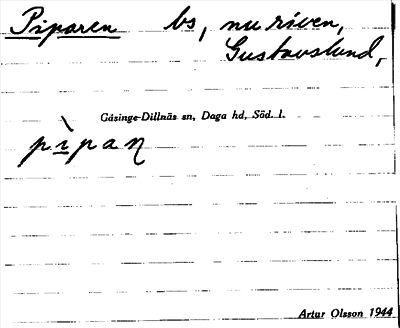 Piparen bs, nu riven,
Gustavslund,
Gåsinge-Dillnäs sn, Daga hd, Söd. l.
pìpaɳ
Artur Olsson 1944